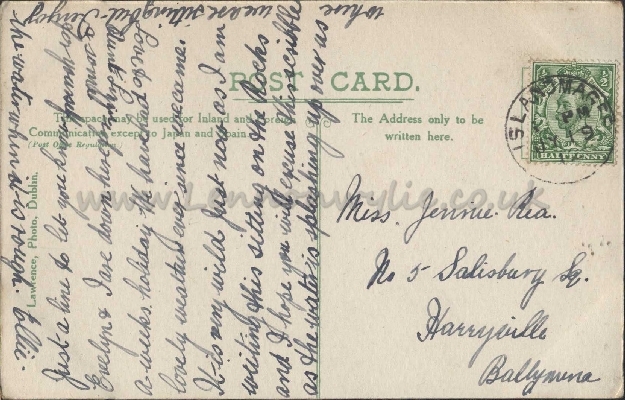 POST CARD.
This space may be used for Inland and Foreign
Communication except to Japan and Spain.
(Post Office Regulation.)
The Address only to be
written here.
Lawrence, Photo, Dublin.
HALFPENNY
ISLANDMAGEE
Miss. Jennie Rea.
No 5 Salisbury Sq.
Harryville
Ballymena
Just a line to let you know
Evelyn & I are down here for
a weeks holiday. We have had
lovely weather ever since we came.
It is very wild just now as I am
writing this sitting on the Rocks
and I hope you will excuse this scribble
as the water is splashing up over us
where we are sitting but I enjoy
the water when it is rough. Ellie.
www.Lennonwylie.co.uk